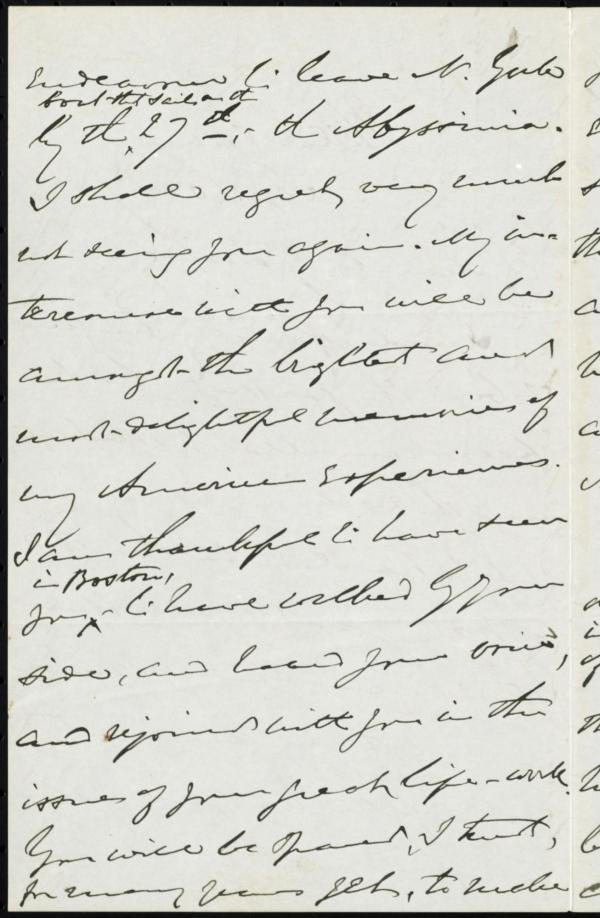 Endeavour to leave N. York
boat that sails on the
by the 27th, - the Abyssinia.
I shall regret very much
not seeing you again. My in=
tercourse with you will be
amongst the brightest and
most delightful memories of
my American Experiences.
I am thankful to have seen
in Boston,
you, - to have walked by your
side, and heard your voice,
and rejoiced with you in the
issues of your great life-work.
You will be spared, I trust,
for many years yet, to make